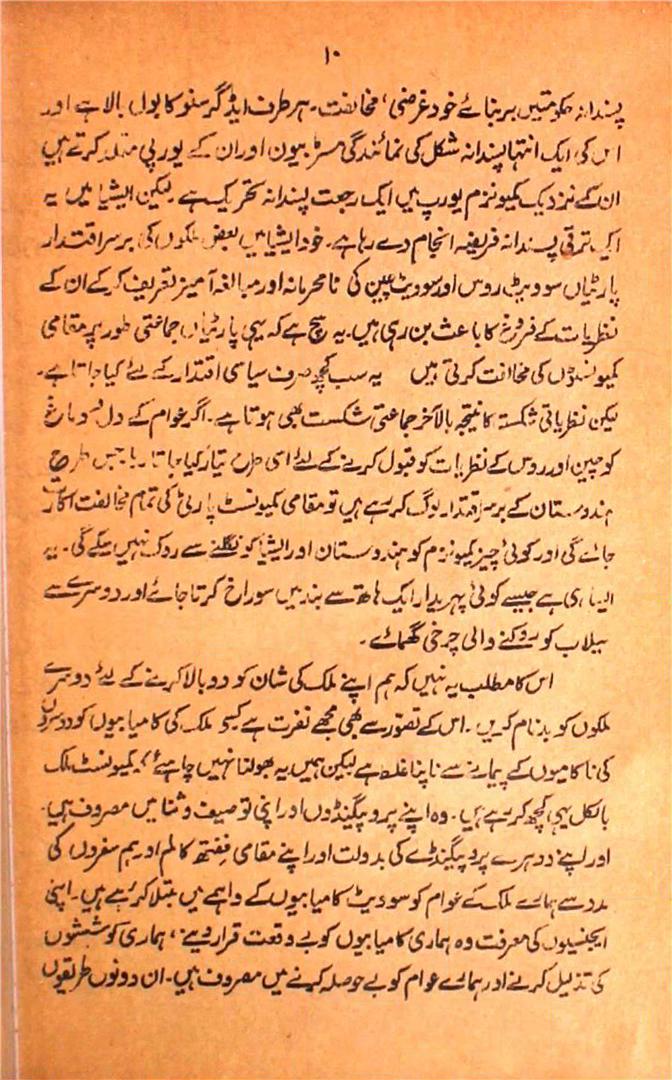 ۱۰
پسندانہ حکومتیں بربنائے خود غرضی، مخالفت۔ ہر طرف ایڈگر سنو کا بول بالا ہے اور
اس کی ایک انتہا پسندانہ شکل کی نمائندگی مسٹر بیون اور ان کے یورپی مقلد کرتے ہیں
ان کے نزدیک کمیونزم یورپ میں ایک رجعت پسندانہ تحریک ہے لیکن ایشیا میں یہ
ایک ترقی پسندانہ فریضہ انجام دے رہا ہے۔ خود ایشیا میں بعض ملکوں کی برسر اقتدار
پارٹیاں سوویٹ روس اور سوویٹ چین کی نامحرمانہ اور مبالغہ آمیز تعریف کر کے ان کے
نظریات کے فروغ کا باعث بن رہی ہیں۔ یہ سچ ہے کہ یہی پارٹیاں جماعتی طور پر مقامی
کمیونسٹوں کی مخالفت کرتی ہیں یہ سب کچھ صرف سیاسی اقتدار کے لئے کیا جاتا ہے۔
لیکن نظریاتی شکست کا نتیجہ بالآخر جماعتی شکست بھی ہوتا ہے۔ اگر عوام کے دل و دماغ
کو چین اور روس کے نظریات کو قبول کرنے کے لئے اسی طرح تیار کیا جاتا رہا جس طرح
ہندوستان کے برسر اقتدار لوگ کر رہے ہیں تو مقامی کمیونسٹ پارٹی کی تمام مخالفت اکارت
جائے گی اور کوئی چیز کمیونزم کو ہندوستان اور ایشیا کو نگلنے سے روک نہیں سکے گی۔ یہ
ایسا ہی ہے جیسے کوئی پہریدار ایک ہاتھ سے بند میں سوراخ کرتا جائے اور دوسرے سے
سیلاب کو روکنے والی چرخی گھمائے۔
اس کا مطلب یہ نہیں کہ ہم اپنے ملک کی شان کو دوبالا کرنے کے لئے دوسرے
ملکوں کو بدنام کریں۔ اس کے تصور سے بھی مجھے نفرت ہے کیونکہ ملک کی کامیابیوں کو دوسروں
کی ناکامیوں کے پیمانے سے ناپنا غلط ہے لیکن ہمیں یہ بھولنا نہیں چاہیئے کہ کمیونسٹ ملک
بالکل یہی کچھ کر رہے ہیں۔ وہ اپنے پروپیگنڈوں اور اپنی توصیف و ثنا میں مصروف ہیں۔
اور اپنے دوہرے پروپیگنڈے کی بدولت اور اپنے مقامی ففتھ کالم اور ہم سفروں کی
مدد سے ہمارے ملک کے عوام کو سوویٹ کامیابیوں کے واہمے میں مبتلا کر رہے ہیں۔ اپنی
ایجنسیوں کی معرفت وہ ہماری کامیابیوں کو بے وقعت قرار دینے، ہماری کوششوں
کی تذلیل کرنے اور ہمارے عوام کو بے حوصلہ کرنے میں مصروف ہیں۔ ان دونوں طریقوں